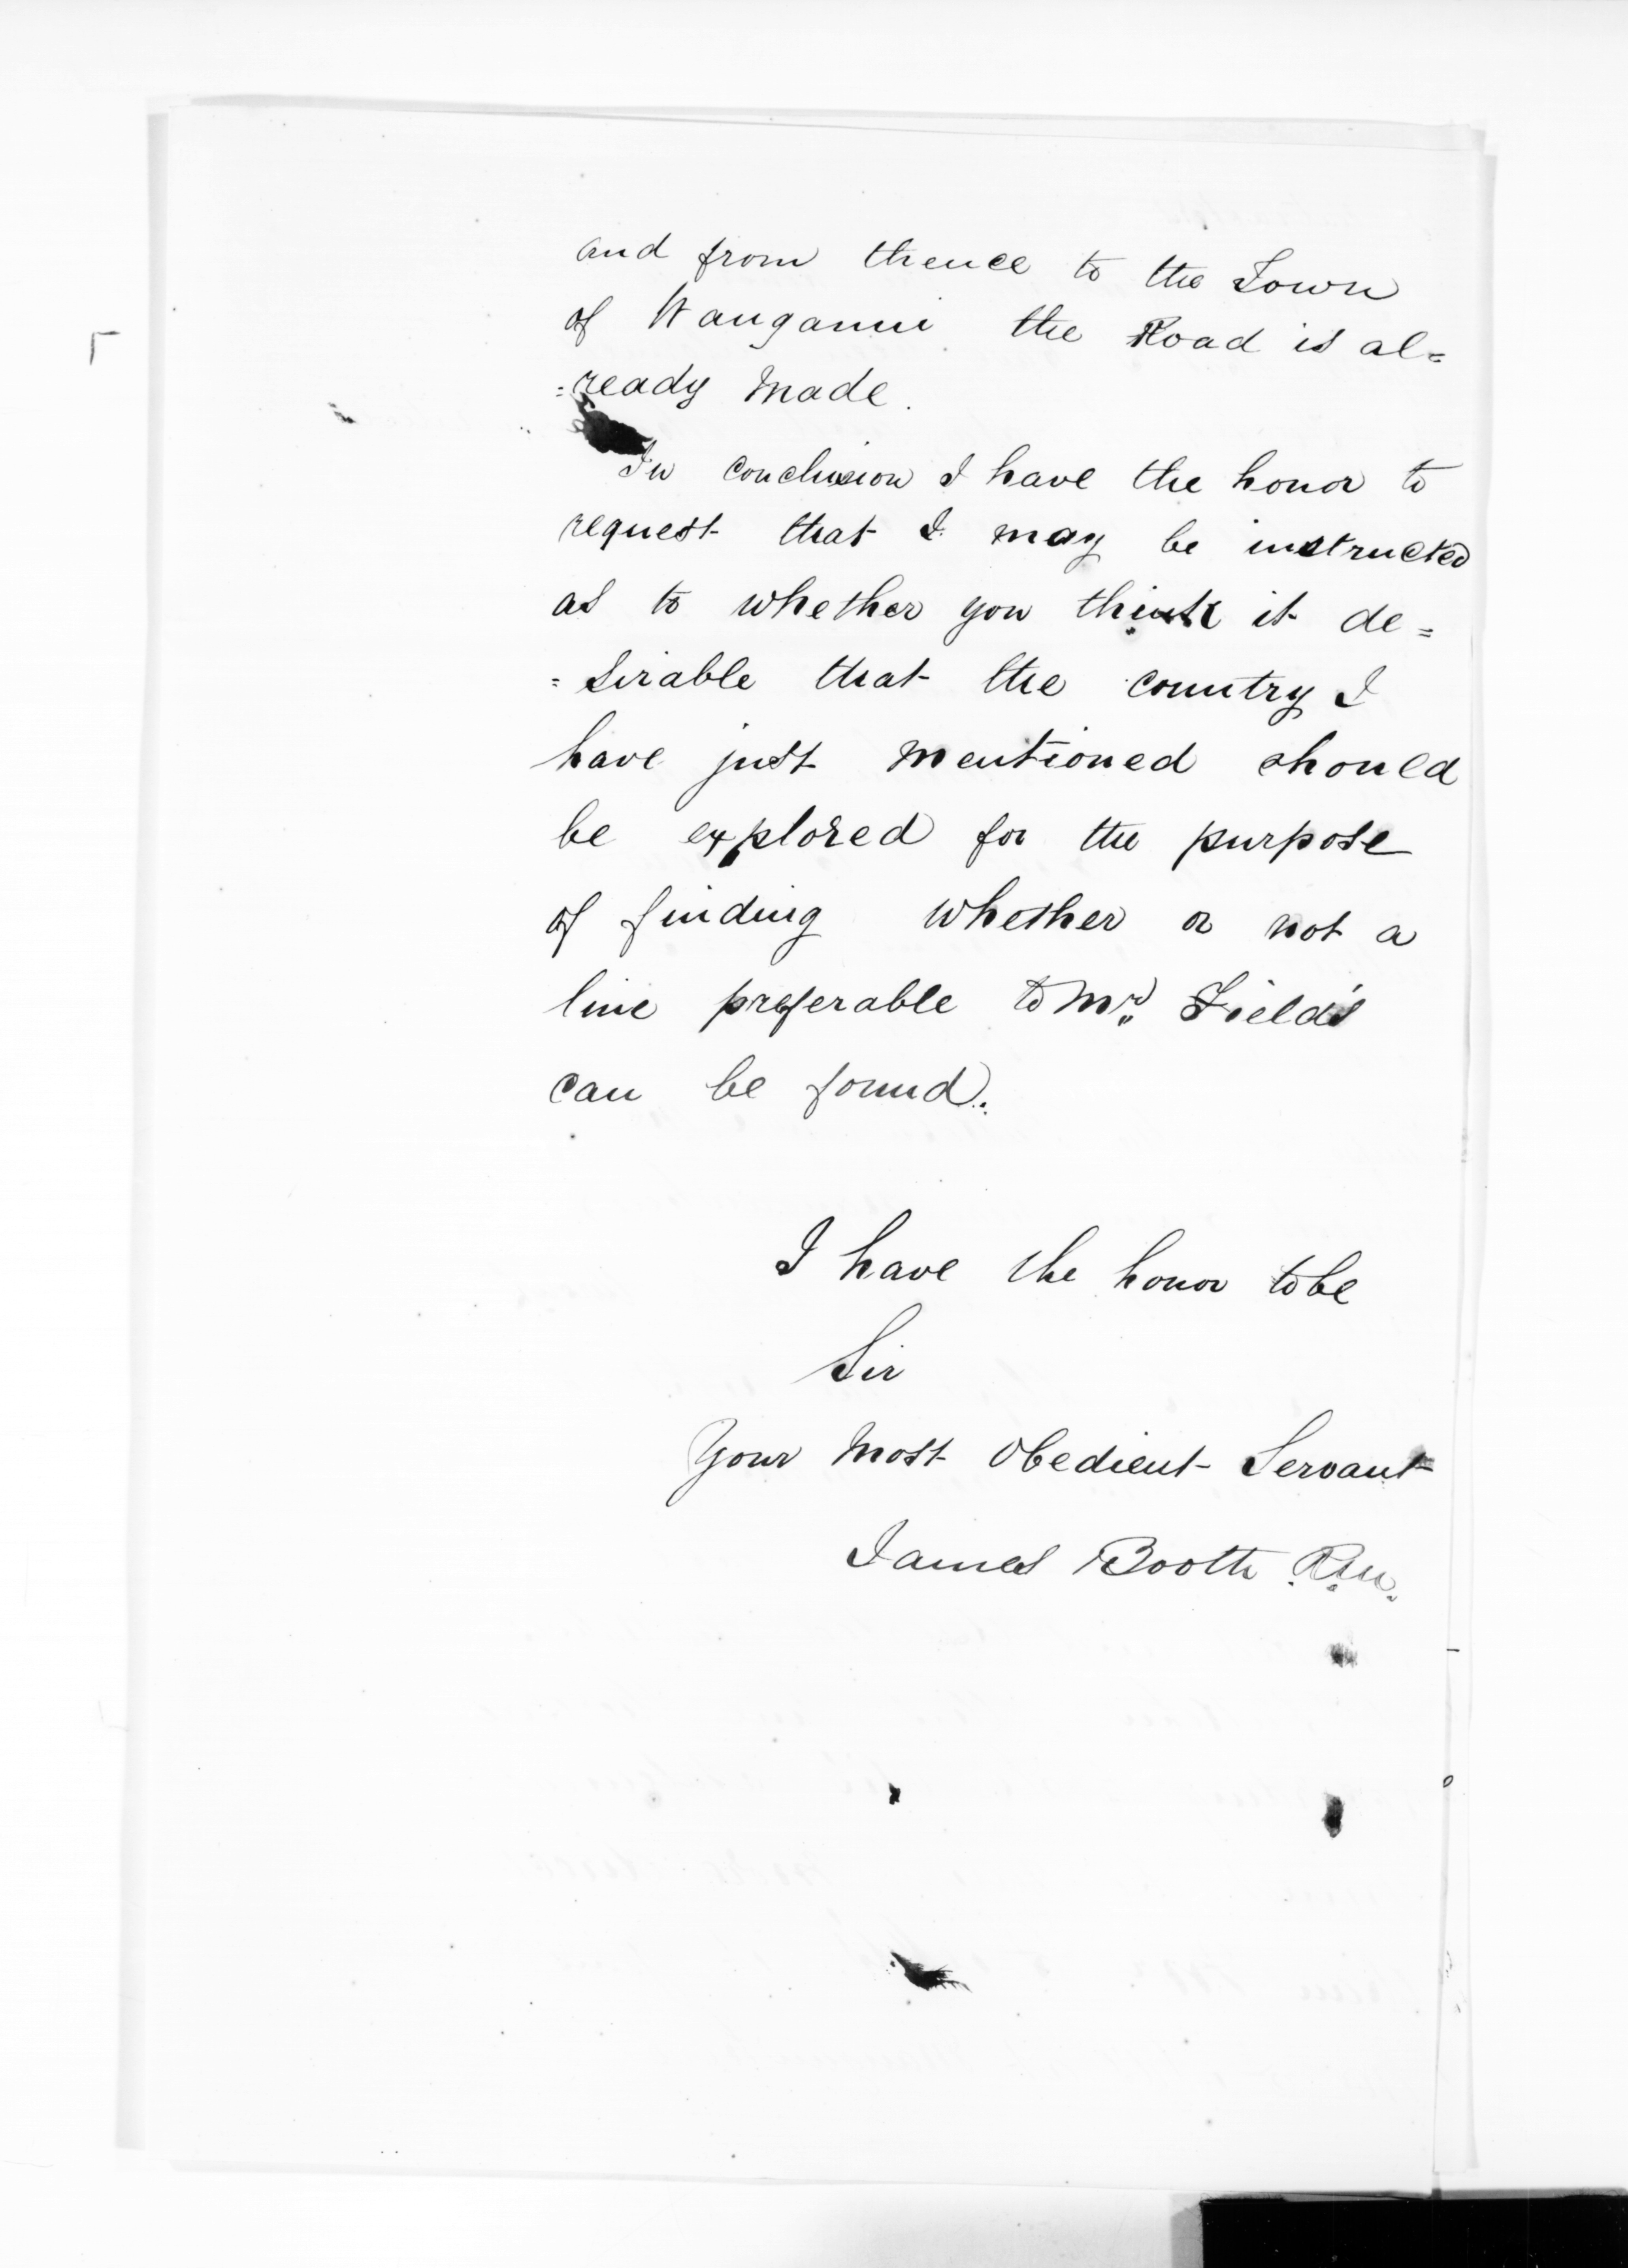 and from thence to the Town
of Wanganui the Road is al=
=ready made.
In conclusion I have the honor to
request that I may be instructed
as to whether you think it de=
=sirable that the country I
have just mentioned should
be explored for the purpose
of finding whether or not a
line preferable to Mr. Field's
can be found.
I have the honor to be
Sir
Your most obedient Servant
James Booth R.M.